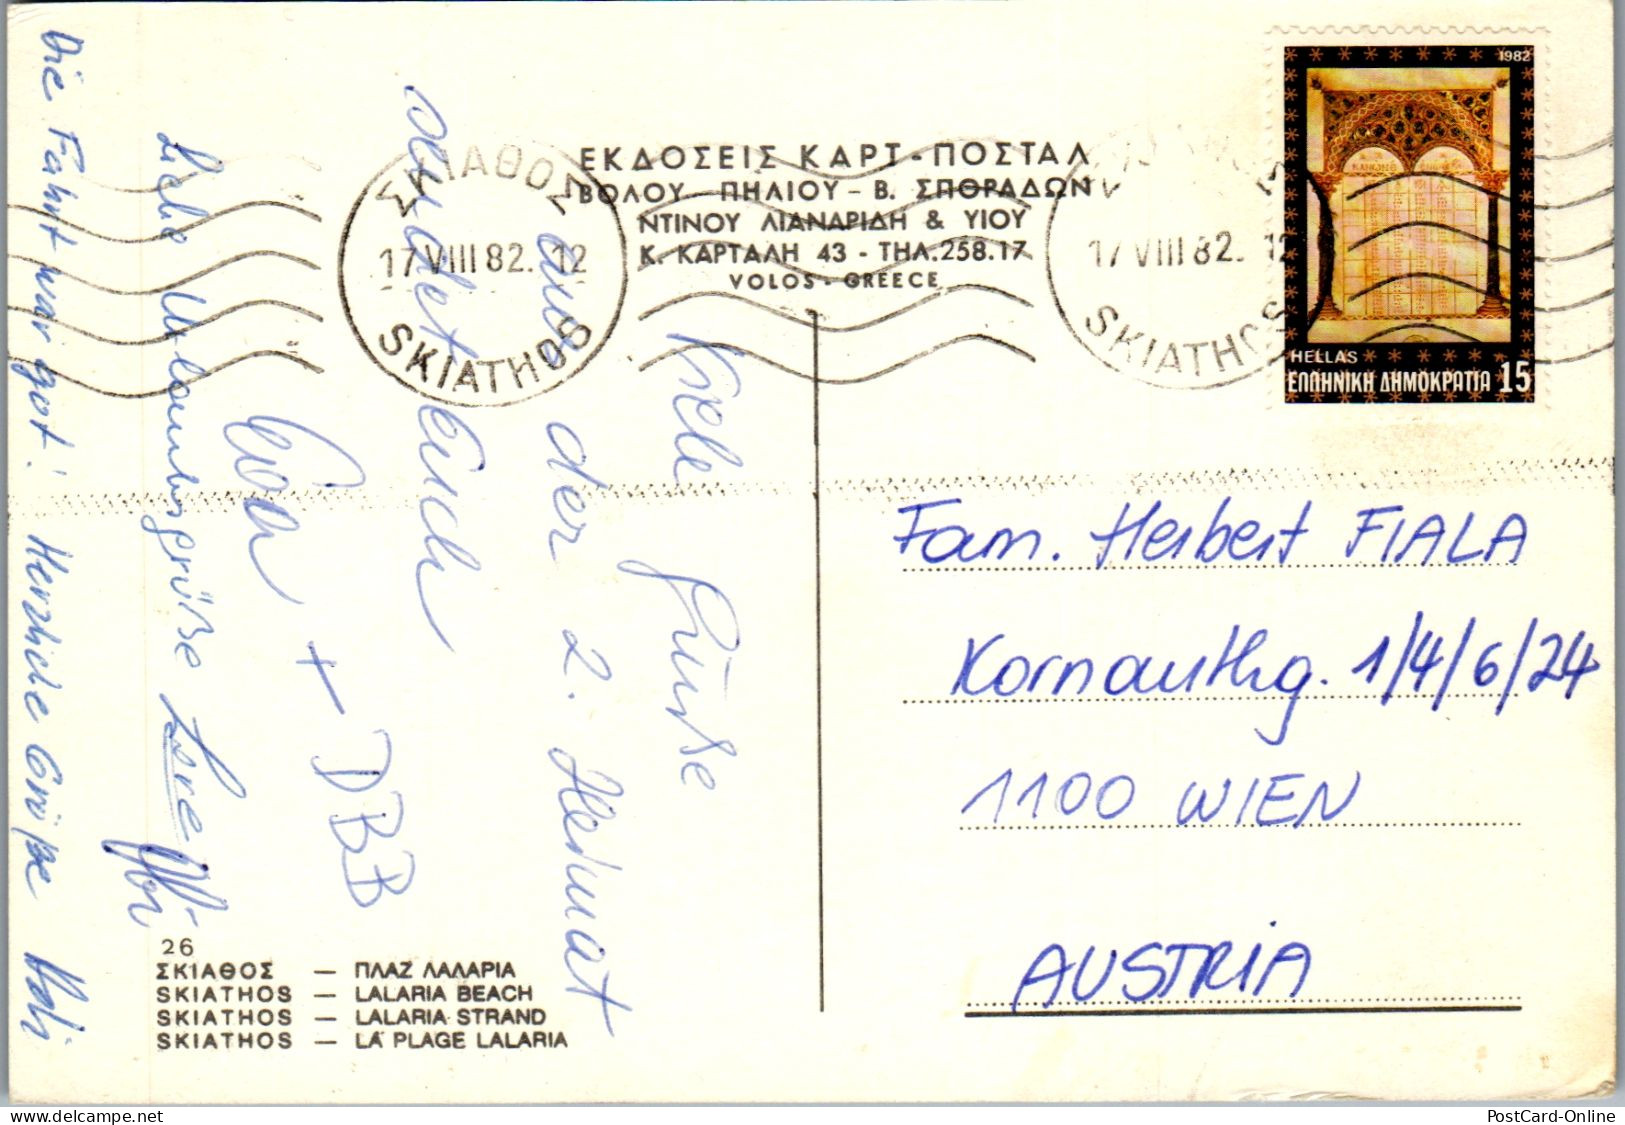 ΕΚΔΟΣΕΙΣ ΚΑΡΤ-ΠΟΣΤΑΛ
ΒΟΛΟΥ - ΠΗΛΙΟΥ - Β. ΣΠΟΡΑΔΩΝ
ΝΤΙΝΟΥ ΛΙΑΝΑΡΙΔΗ & ΥΙΟΥ
Κ. ΚΑΡΤΑΛΗ 43 - ΤΗΛ.258.17
VOLOS - GREECE
ΣΚΙΑΘΟΣ
17 VIII 82. 12
SKIATHOS
17 VIII 82. 12
SKIATHOS
1982
HELLAS
ΕΛΛΗΝΙΚΗ ΔΗΜΟΚΡΑΤΙΑ 15
Viele Grüße
aus der 2. Heimat
sendet Euch
+ DBB
Liebe Urlaubsgrüße
Die Fahrt war gut! Herzliche Grüße
Fam. Herbert FIALA
Kornauthg. 1/4/6/24
1100 WIEN
AUSTRIA
26
ΣΚΙΑΘΟΣ — ΠΛΑΖ ΛΑΛΑΡΙΑ
SKIATHOS — LALARIA BEACH
SKIATHOS — LALARIA STRAND
SKIATHOS — LA PLAGE LALARIA
PostCard-Online